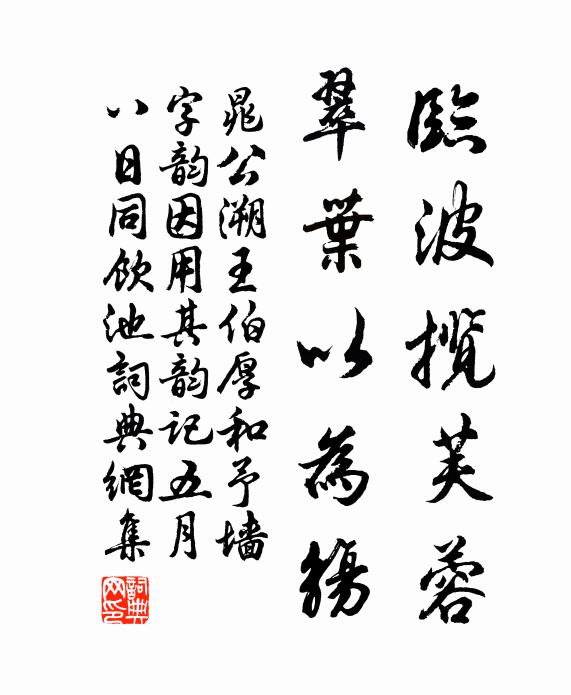 臨波攬芙蓉
翠葉以為觴
晁公溯王伯厚和予墙
字韵因用其韵記五月
八日同飲池詞典網集
詞典網印